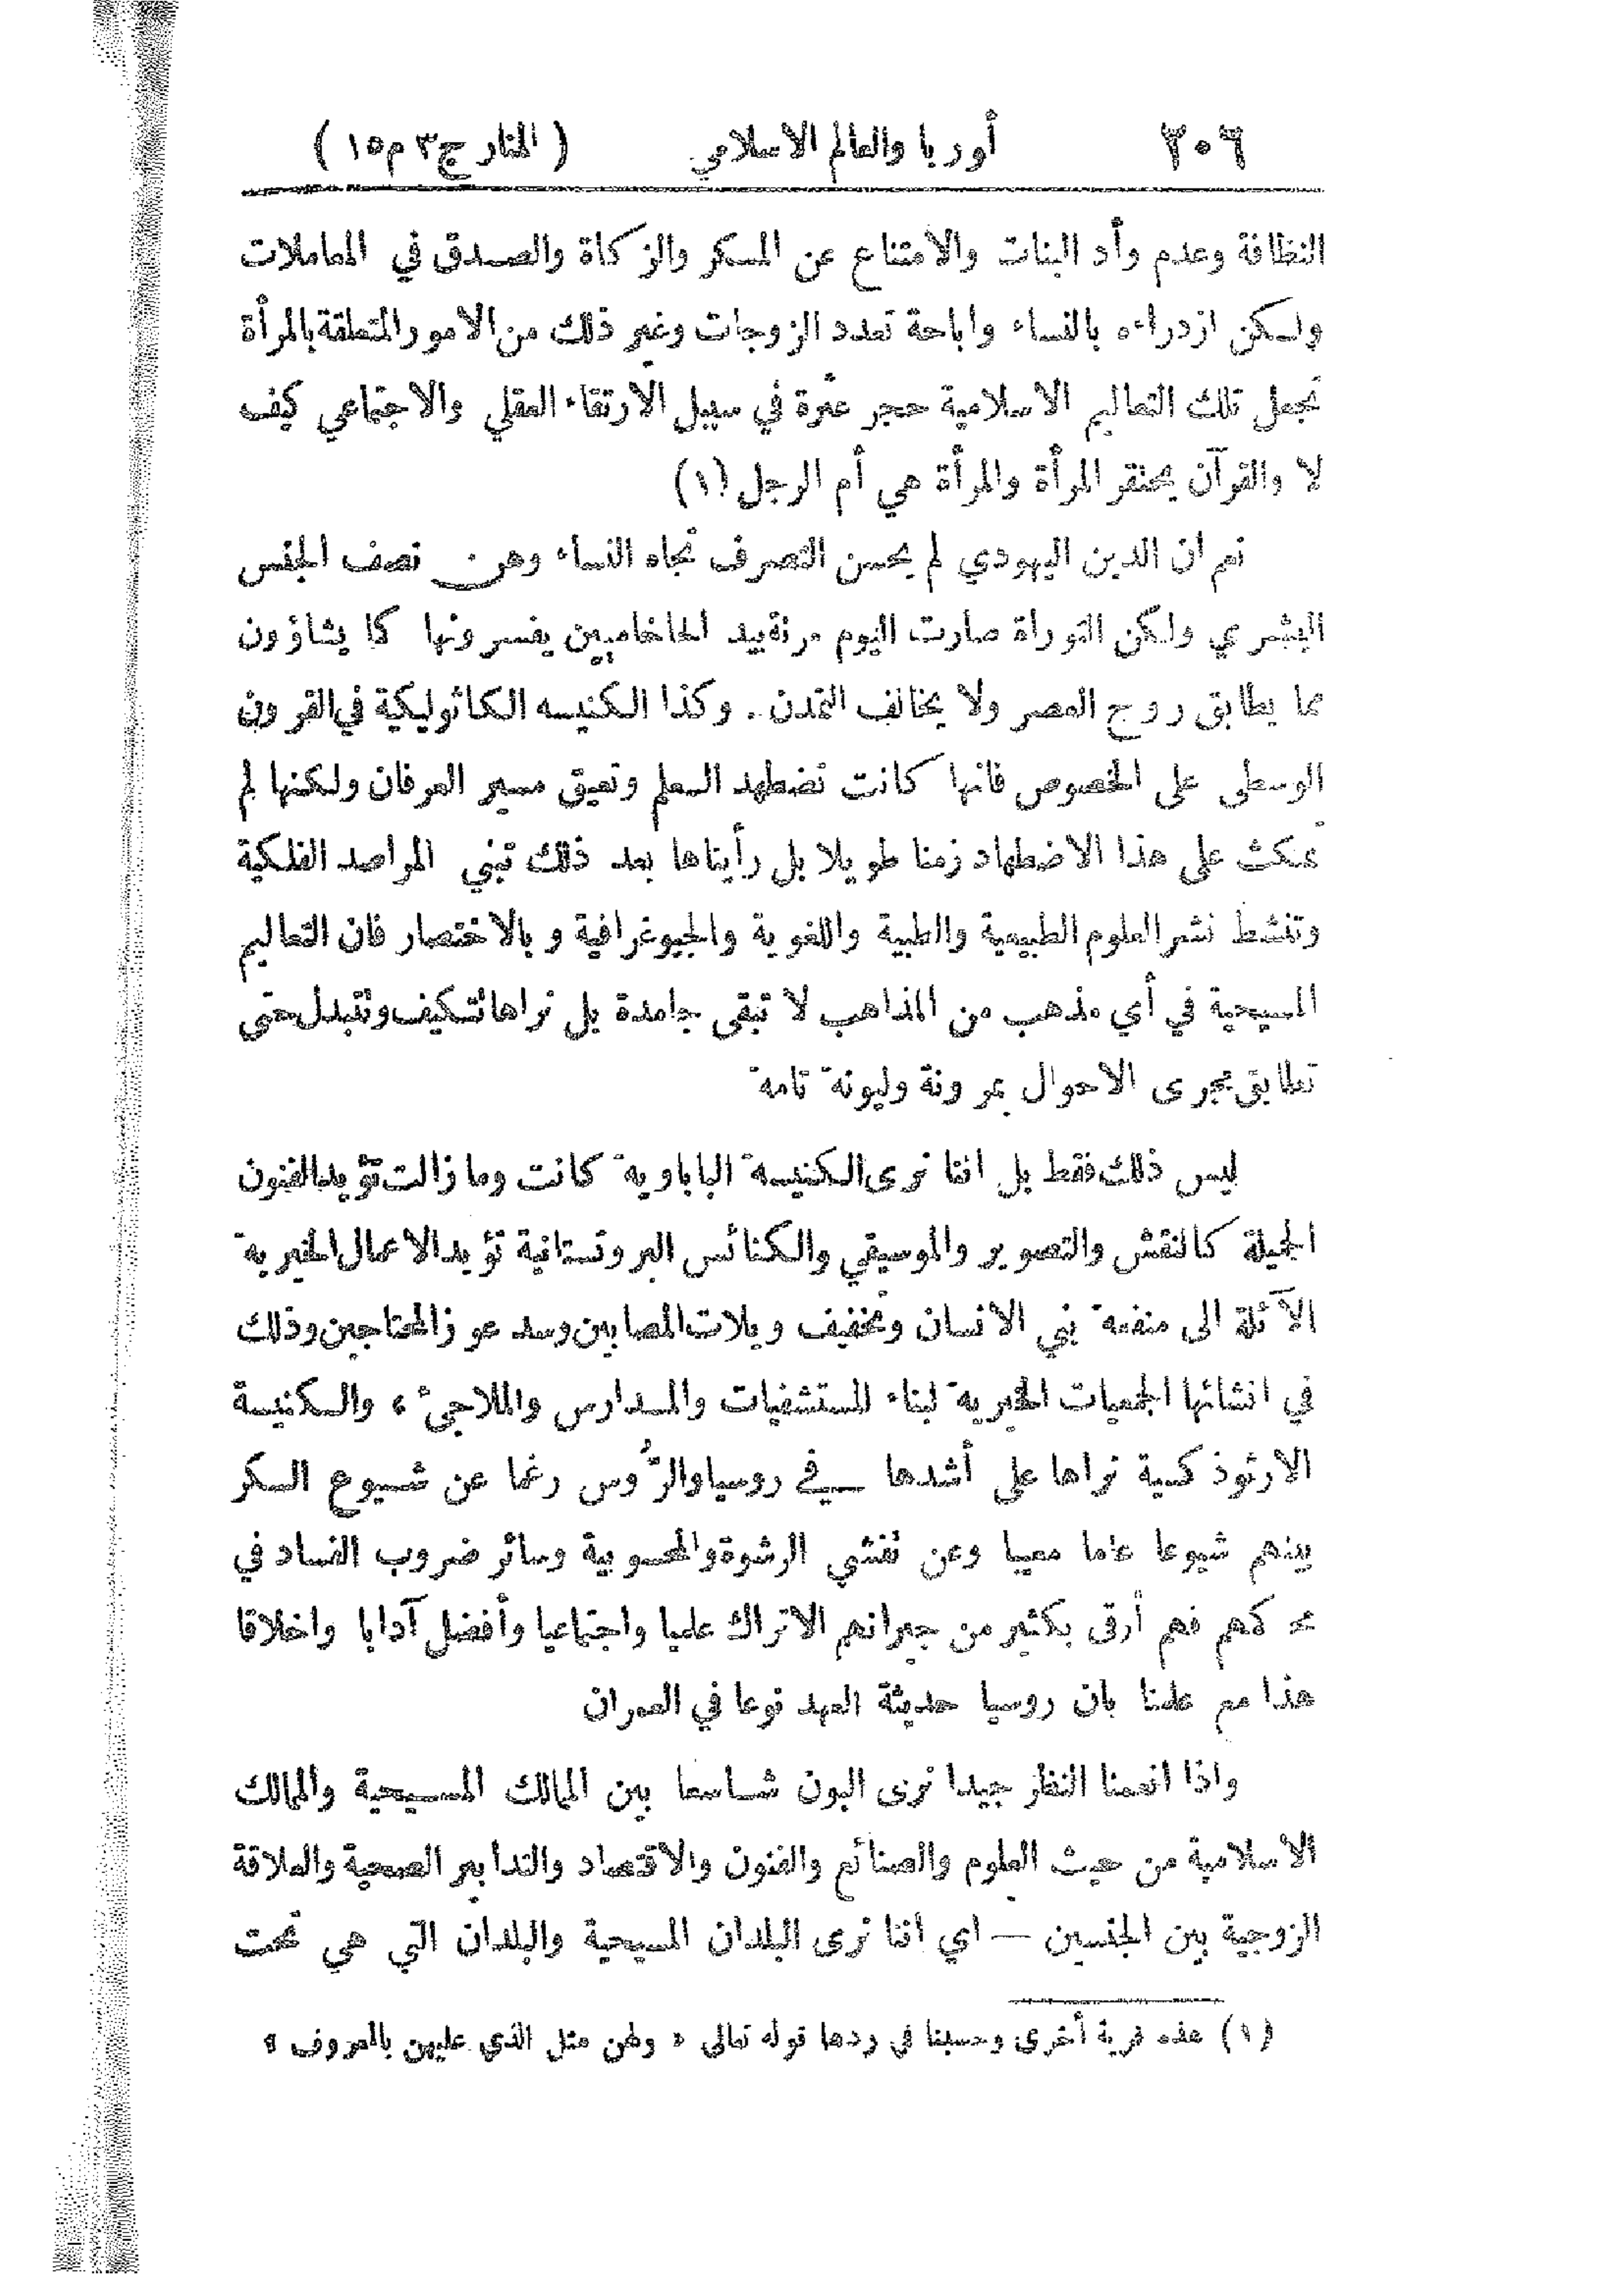 ٢٠٦ أوربا والعالم الاسلامي ( المنار ج٣ م١٥ )
النظافة وعدم وأد البنات والامتناع عن المسكر والزكاة والصدق في المعاملات
ولكن ازدراءه بالنساء واباحة تعدد الزوجات وغير ذلك من الامور المتعلقة بالمرأة
تجعل تلك التعاليم الاسلامية حجر عثرة في سبيل الارتقاء العقلي والاجتماعي كيف
لا والقرآن يحتقر المرأة والمرأة هي أم الرجل (١)
نعم ان الدين اليهودي لم يحسن التصرف تجاه النساء وهن نصف الجنس
البشري ولكن التوراة صارت اليوم مرنة بيد الحاخاميين يفسرونها كما يشاؤون
مما يطابق روح العصر ولا يخالف التمدن . وكذا الكنيسه الكاثوليكة في القرون
الوسطى على الخصوص فانها كانت تضطهد العلم وتعيق مسير العرفان ولكنها لم
تمكث على هذا الاضطهاد زمنا طويلا بل رأيناها بعد ذلك تبني المراصد الفلكية
وتنشط نشر العلوم الطبيعية والطبية واللغوية والجيوغرافية وبالاختصار فان التعاليم
المسيحية في أي مذهب من المذاهب لا تبقى جامدة بل نراها تتكيف وتتبدل حتى
تطابق مجرى الاحوال بمرونة وليونة تامة
ليس ذلك فقط بل اننا نرى الكنيسة الباباوية كانت وما زالت تؤيد الفنون
الجميلة كالنقش والتصوير والموسيقي والكنائس البروتستانية تؤيد الاعمال الخيرية
الآئلة الى منفعة بني الانسان وتخفيف ويلات المصابين وسد عوز المحتاجين وذلك
في انشائها الجمعيات الخيرية لبناء المستشفيات والمدارس والملاجئ ، والكنيسة
الارثوذكسية نراها على أشدها في روسيا والرُّوس رغما عن شيوع السكر
بينهم شيوعا عاما معيبا وعن تفشي الرشوة والمحسوبية وسائر ضروب الفساد في
محاكمهم فهم أرقى بكثير من جيرانهم الاتراك علميا واجتماعيا وأفضل آدابا واخلاقا
هذا مع علمنا بان روسيا حديثة العهد نوعا في العمران
واذا انعمنا النظر جيدا نرى البون شاسعا بين الممالك المسيحية والممالك
الاسلامية من حيث العلوم والصنائع والفنون والاقتصاد والتدابير الصحية والعلاقة
الزوجية بين الجنسين — اي اننا نرى البلدان المسيحية والبلدان التي هي تحت
(١) هذه فرية أخرى وحسبنا في ردها قوله تعالى « ولهن مثل الذي عليهن بالمعروف »